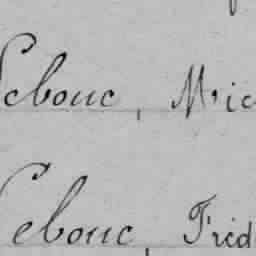 Lebouc, Mic
Lebouc, Fréd